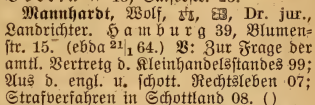 Mannhardt, Wolf, Dr. jur.,
Landrichter. Hamburg 39, Blumen=
str. 15. (ebda 21|1 64.) V: Zur Frage der
amtl. Vertretg d. Kleinhandelsstandes 99;
Aus d. engl. u. schott. Rechtsleben 07;
Strafverfahren in Schottland 08. ()